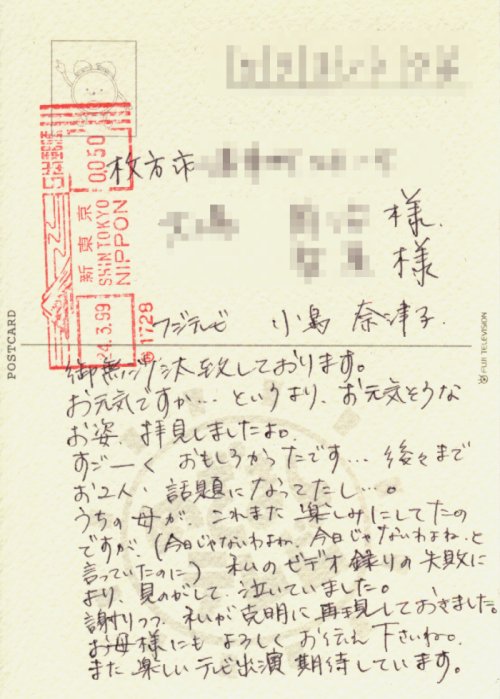 0.050
新東京
SHINTOKYO
NIPPON
24.3.99
1728
枚方市
様
様
フジテレビ 小島 奈津子
POSTCARD
© FUJI TELEVISION
御無沙汰致しております。
お元気ですか… というより、お元気そうな
お姿、拝見しましたよ。
すご〜く おもしろかったです… 後々まで
お2人、話題になってたし…。
うちの母が、これまた 楽しみにしてたの
ですが、(今日じゃないわよね、今日じゃないわよね、と
言っていたのに) 私のビデオ録りの失敗に
より、見のがして、泣いていました。
謝りつつ、私が克明に再現しておきました。
お母様にも よろしく お伝え下さいね。
また 楽しいテレビ出演 期待しています。